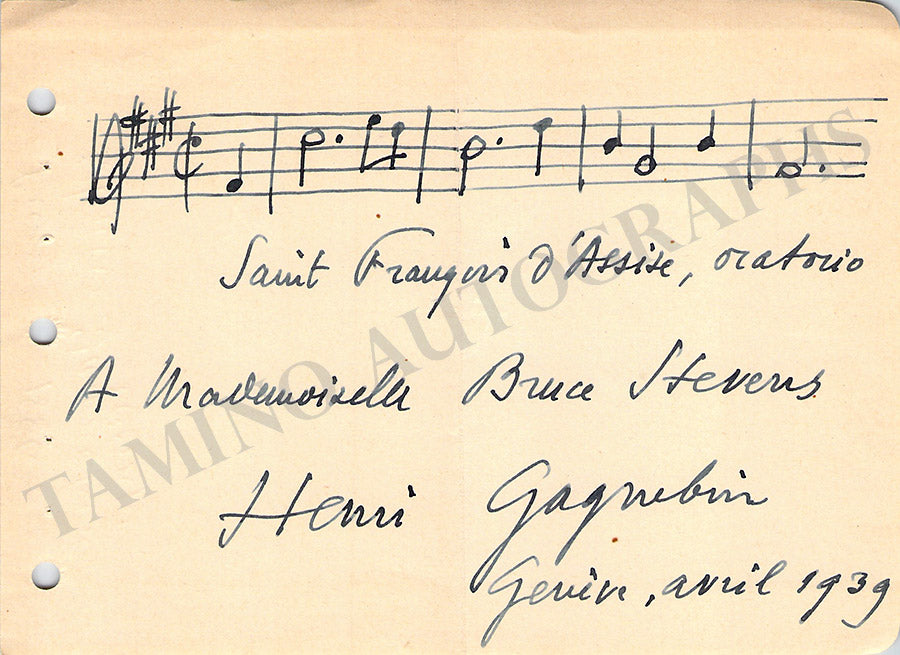 Saint François d'Assise, oratorio
A Mademoiselle Bruce Stevens
Henri Gagnebin
Genève, avril 1939
TAMINO AUTOGRAPHS